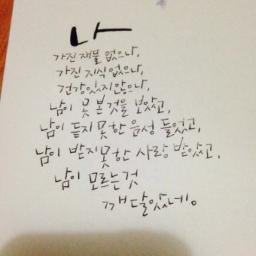 나
가진 재물 없으나,
가진 지식 없으나,
건강 있지 않으나,
남이 못 본 것을 보았고,
남이 듣지 못한 음성 들었고,
남이 받지 못한 사랑 받았고,
남이 모르는 것
깨달았네。